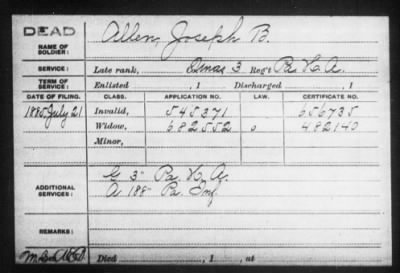 DEAD
NAME OF SOLDIER: Allen, Joseph B.
SERVICE: Late rank, 3 Reg't Pa. H. A.
TERM OF SERVICE: Enlisted , 1 Discharged , 1
DATE OF FILING. CLASS. APPLICATION NO. LAW. CERTIFICATE NO.
1885 July 21 Invalid, 545371 656735
Widow, 682552 482140
Minor,
ADDITIONAL SERVICES: G 3" Pa. H. A.
A 188" Pa. Inf.
REMARKS:
Died , 1 , at